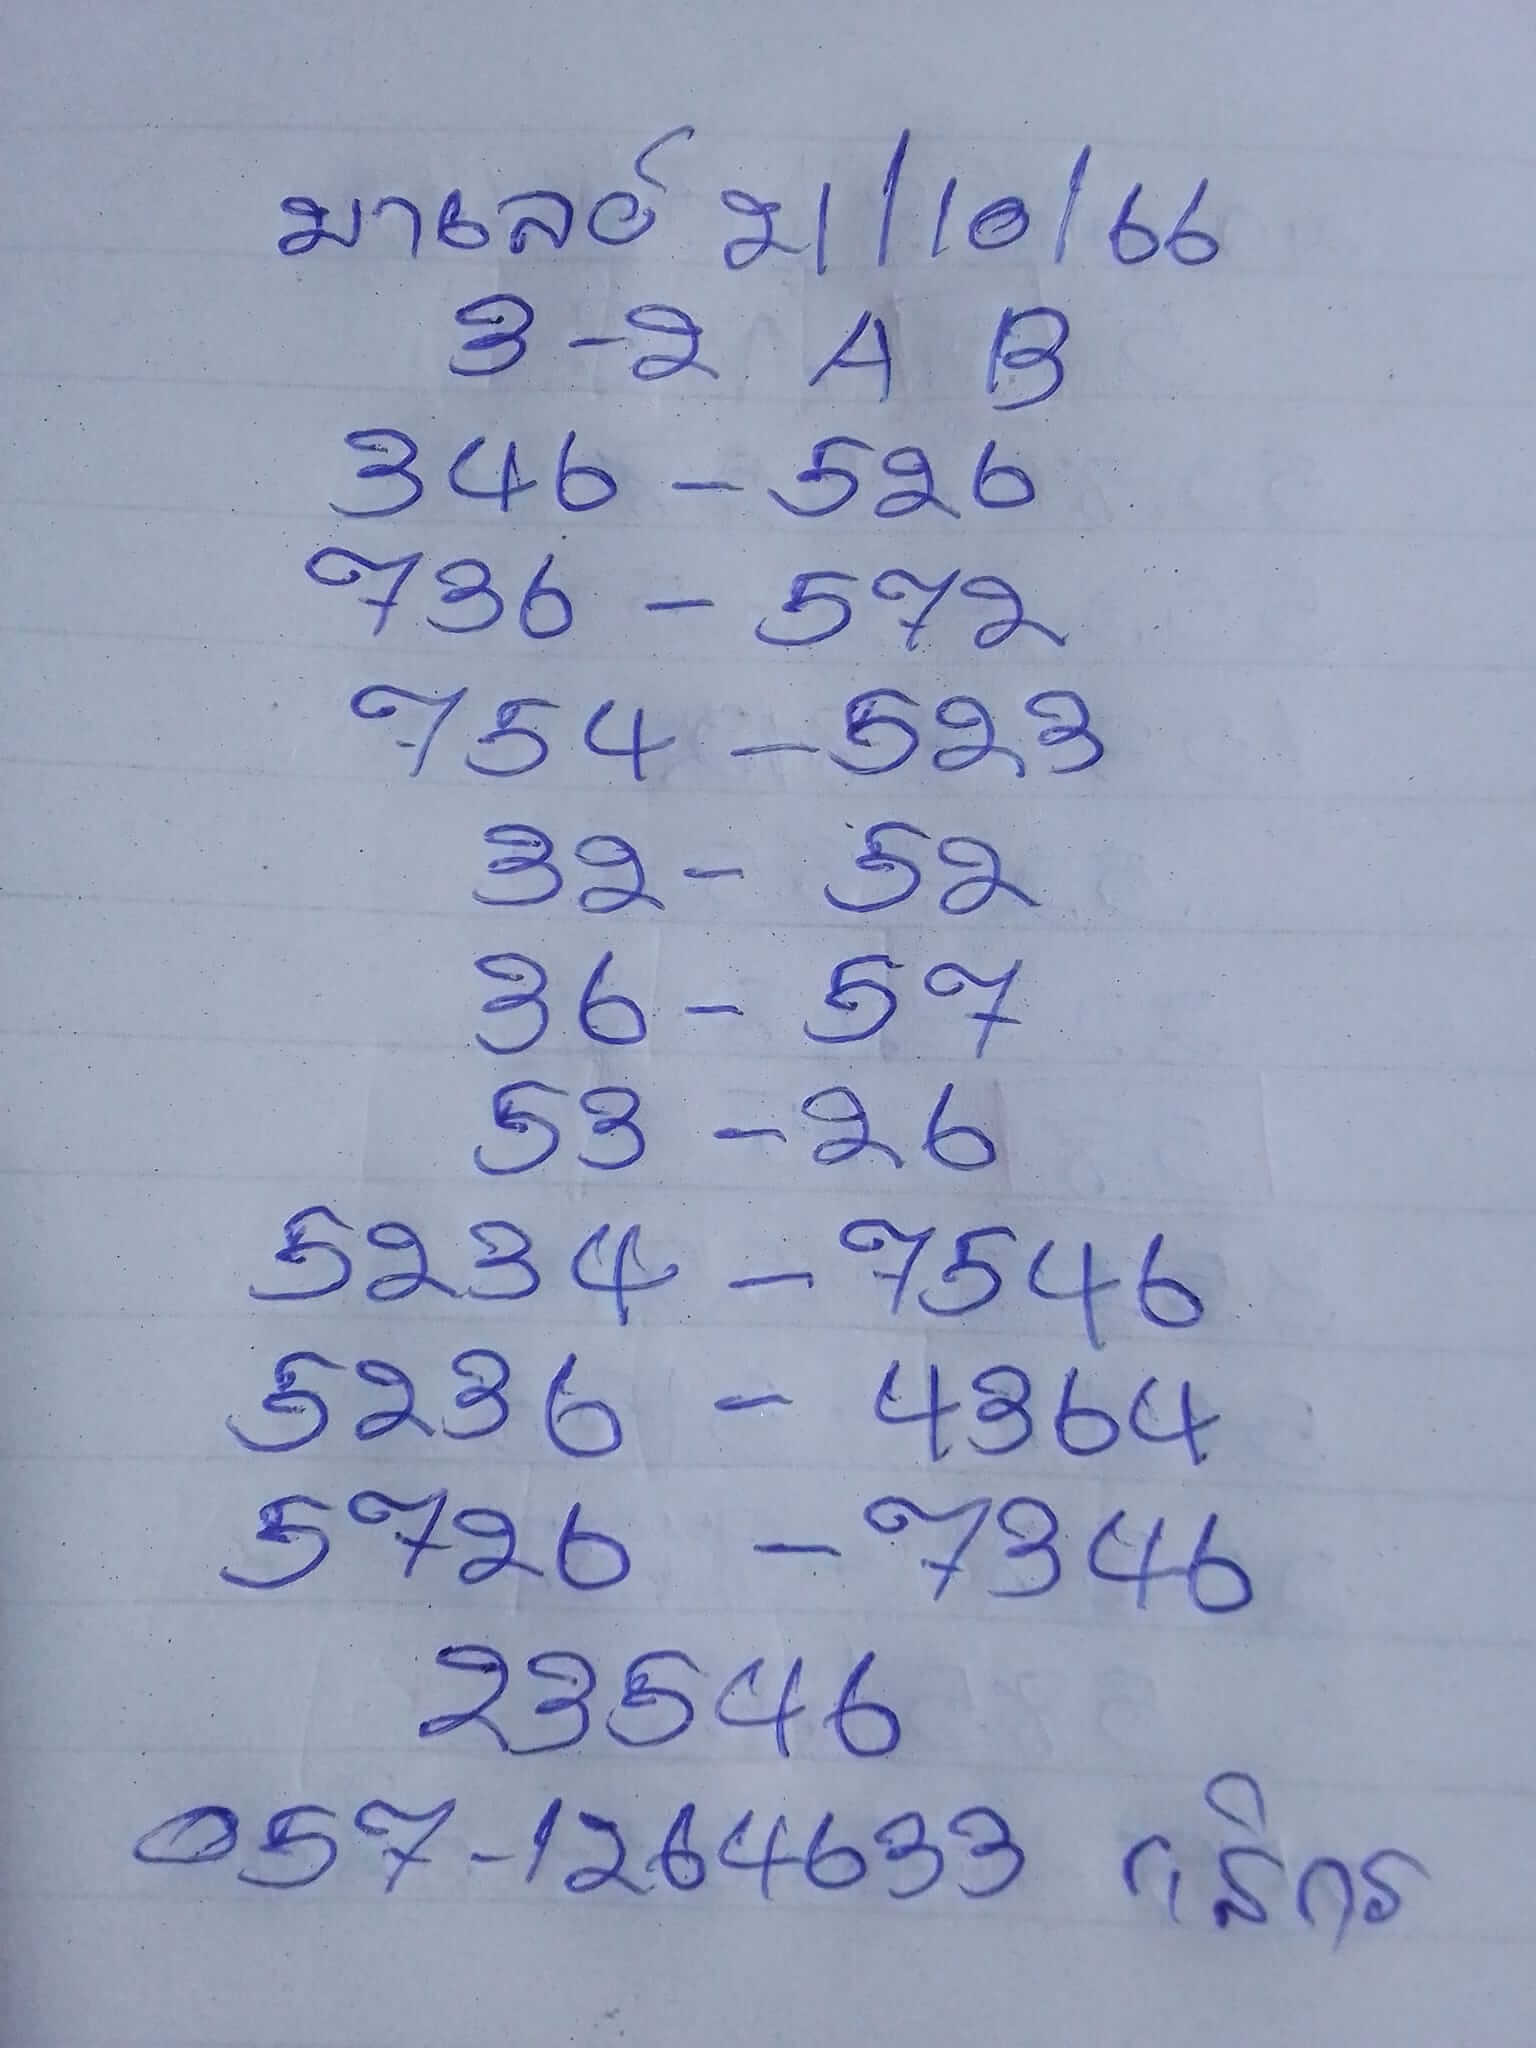 มาเลย์ 21/10/66
3-2 A B
346 - 526
736 - 572
754 - 523
32 - 52
36 - 57
53 - 26
5234 - 7546
5236 - 4364
5726 - 7346
23546
057-1264633 กสิกร